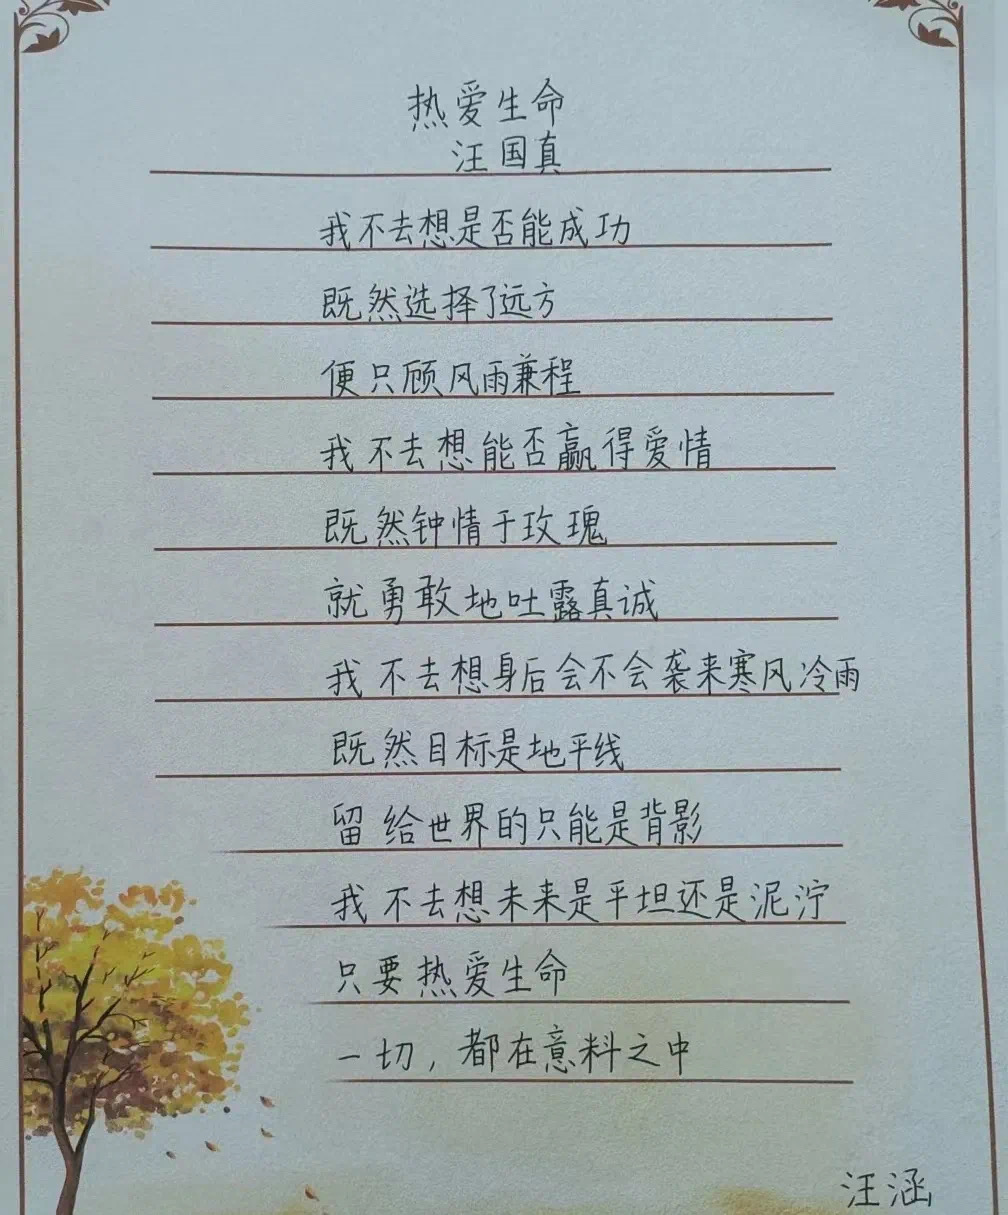 热爱生命
汪国真
我不去想是否能成功
既然选择了远方
便只顾风雨兼程
我不去想能否赢得爱情
既然钟情于玫瑰
就勇敢地吐露真诚
我不去想身后会不会袭来寒风冷雨
既然目标是地平线
留给世界的只能是背影
我不去想未来是平坦还是泥泞
只要热爱生命
一切，都在意料之中
汪涵